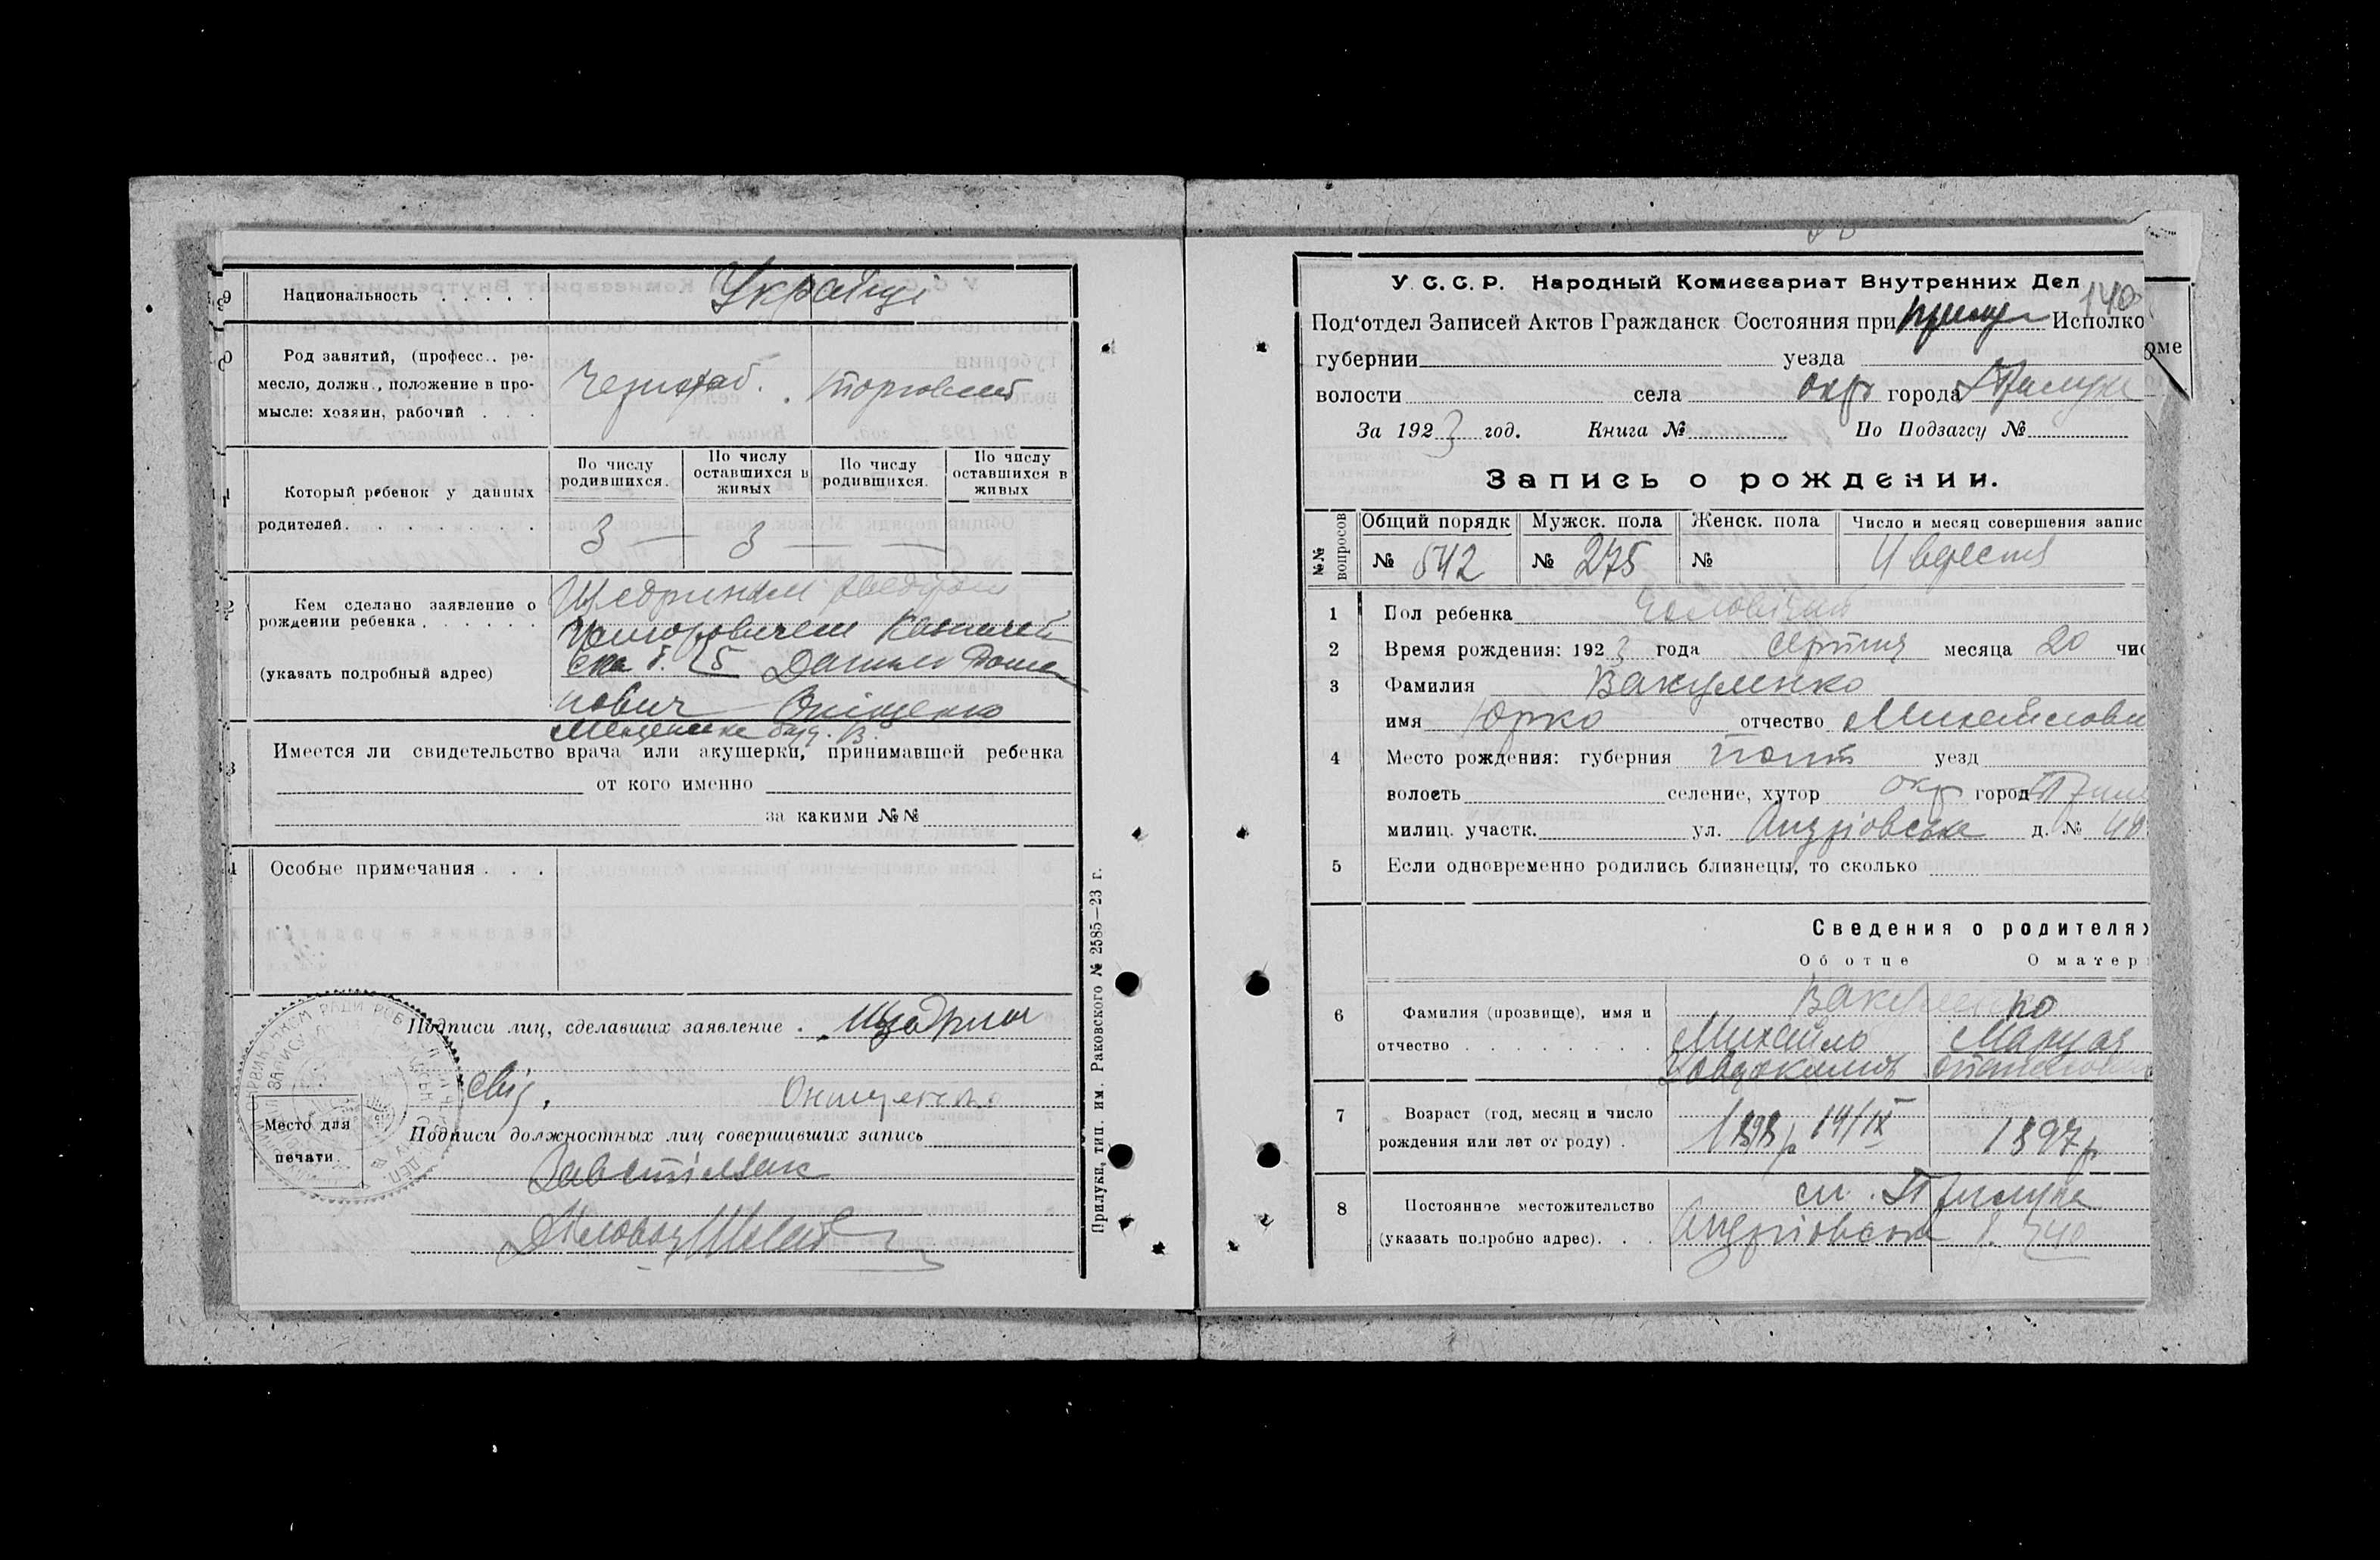 9 Национальность . . . . . Українці
Род занятий, (професс., ре-
месло, должн., положение в про-
мысле: хозяин, рабочий . . .
Который ребенок у данных
родителей . . . . . . . .
По числу родившихся.
По числу оставшихся в живых
По числу родившихся.
По числу оставшихся в живых
3 — 3 — —
Кем сделано заявление о
рождении ребенка . . . . . .
(указать подробный адрес)
Щедриним
б. 25 Данило
Оніщенко
Имеется ли свидетельство врача или акушерки, принимавшей ребенка
от кого именно
за какими №№
Особые примечания . . .
Подписи лиц, сделавших заявление . Щедрин
Свід. Онищенко
Подписи должностных лиц совершивших запись
Место для
печати
Прилуки, тип. им. Раковского № 2585—23 г.
140
У. С. С. Р. Народный Комиссариат Внутренних Дел
Под'отдел Записей Актов Гражданск. Состояния при Прилуц Исполко
оме
губернии уезда
волости села окр города Прилуки
За 1923 год. Книга № По Подзагсу №
Запись о рождении.
№№ вопросов
Общий порядк Мужск. пола Женск. пола Число и месяц совершения запис
№ 542 № 275 № 4 вересня
1 Пол ребенка Чоловічий
2 Время рождения: 1923 года серпня месяца 20 чис
3 Фамилия Вакуленко
имя Юрко отчество Михайлови
4 Место рождения: губерния Полт уезд
волость селение, хутор окр город Прил
милиц. участк. ул. Андріовська д. № 40
5 Если одновременно родились близнецы, то сколько
Сведения о родителях
Об отце О матер
6 Фамилия (прозвище), имя и
отчество . . . . . . . .
Вакуленко
Михайло Маруся
7 Возраст (год, месяц и число
рождения или лет от роду) .
1898 р 14/IX 1897 р
8 Постоянное местожительство
(указать подробно адрес). . .
м. Прилуки
Андріовська